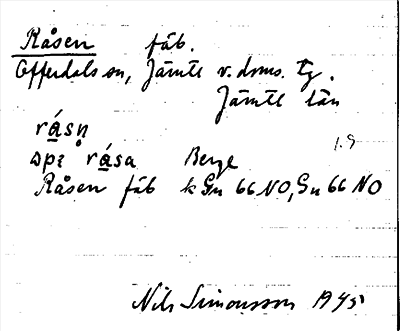 Råsen fäb.
Offerdals sn, Jämtl v. doms. tg.
Jämtl län
rásn
1.9
rása Berge
Råsen fäb k Gn 66 NO, Gn 66 NO
Nils Simonsson 1945